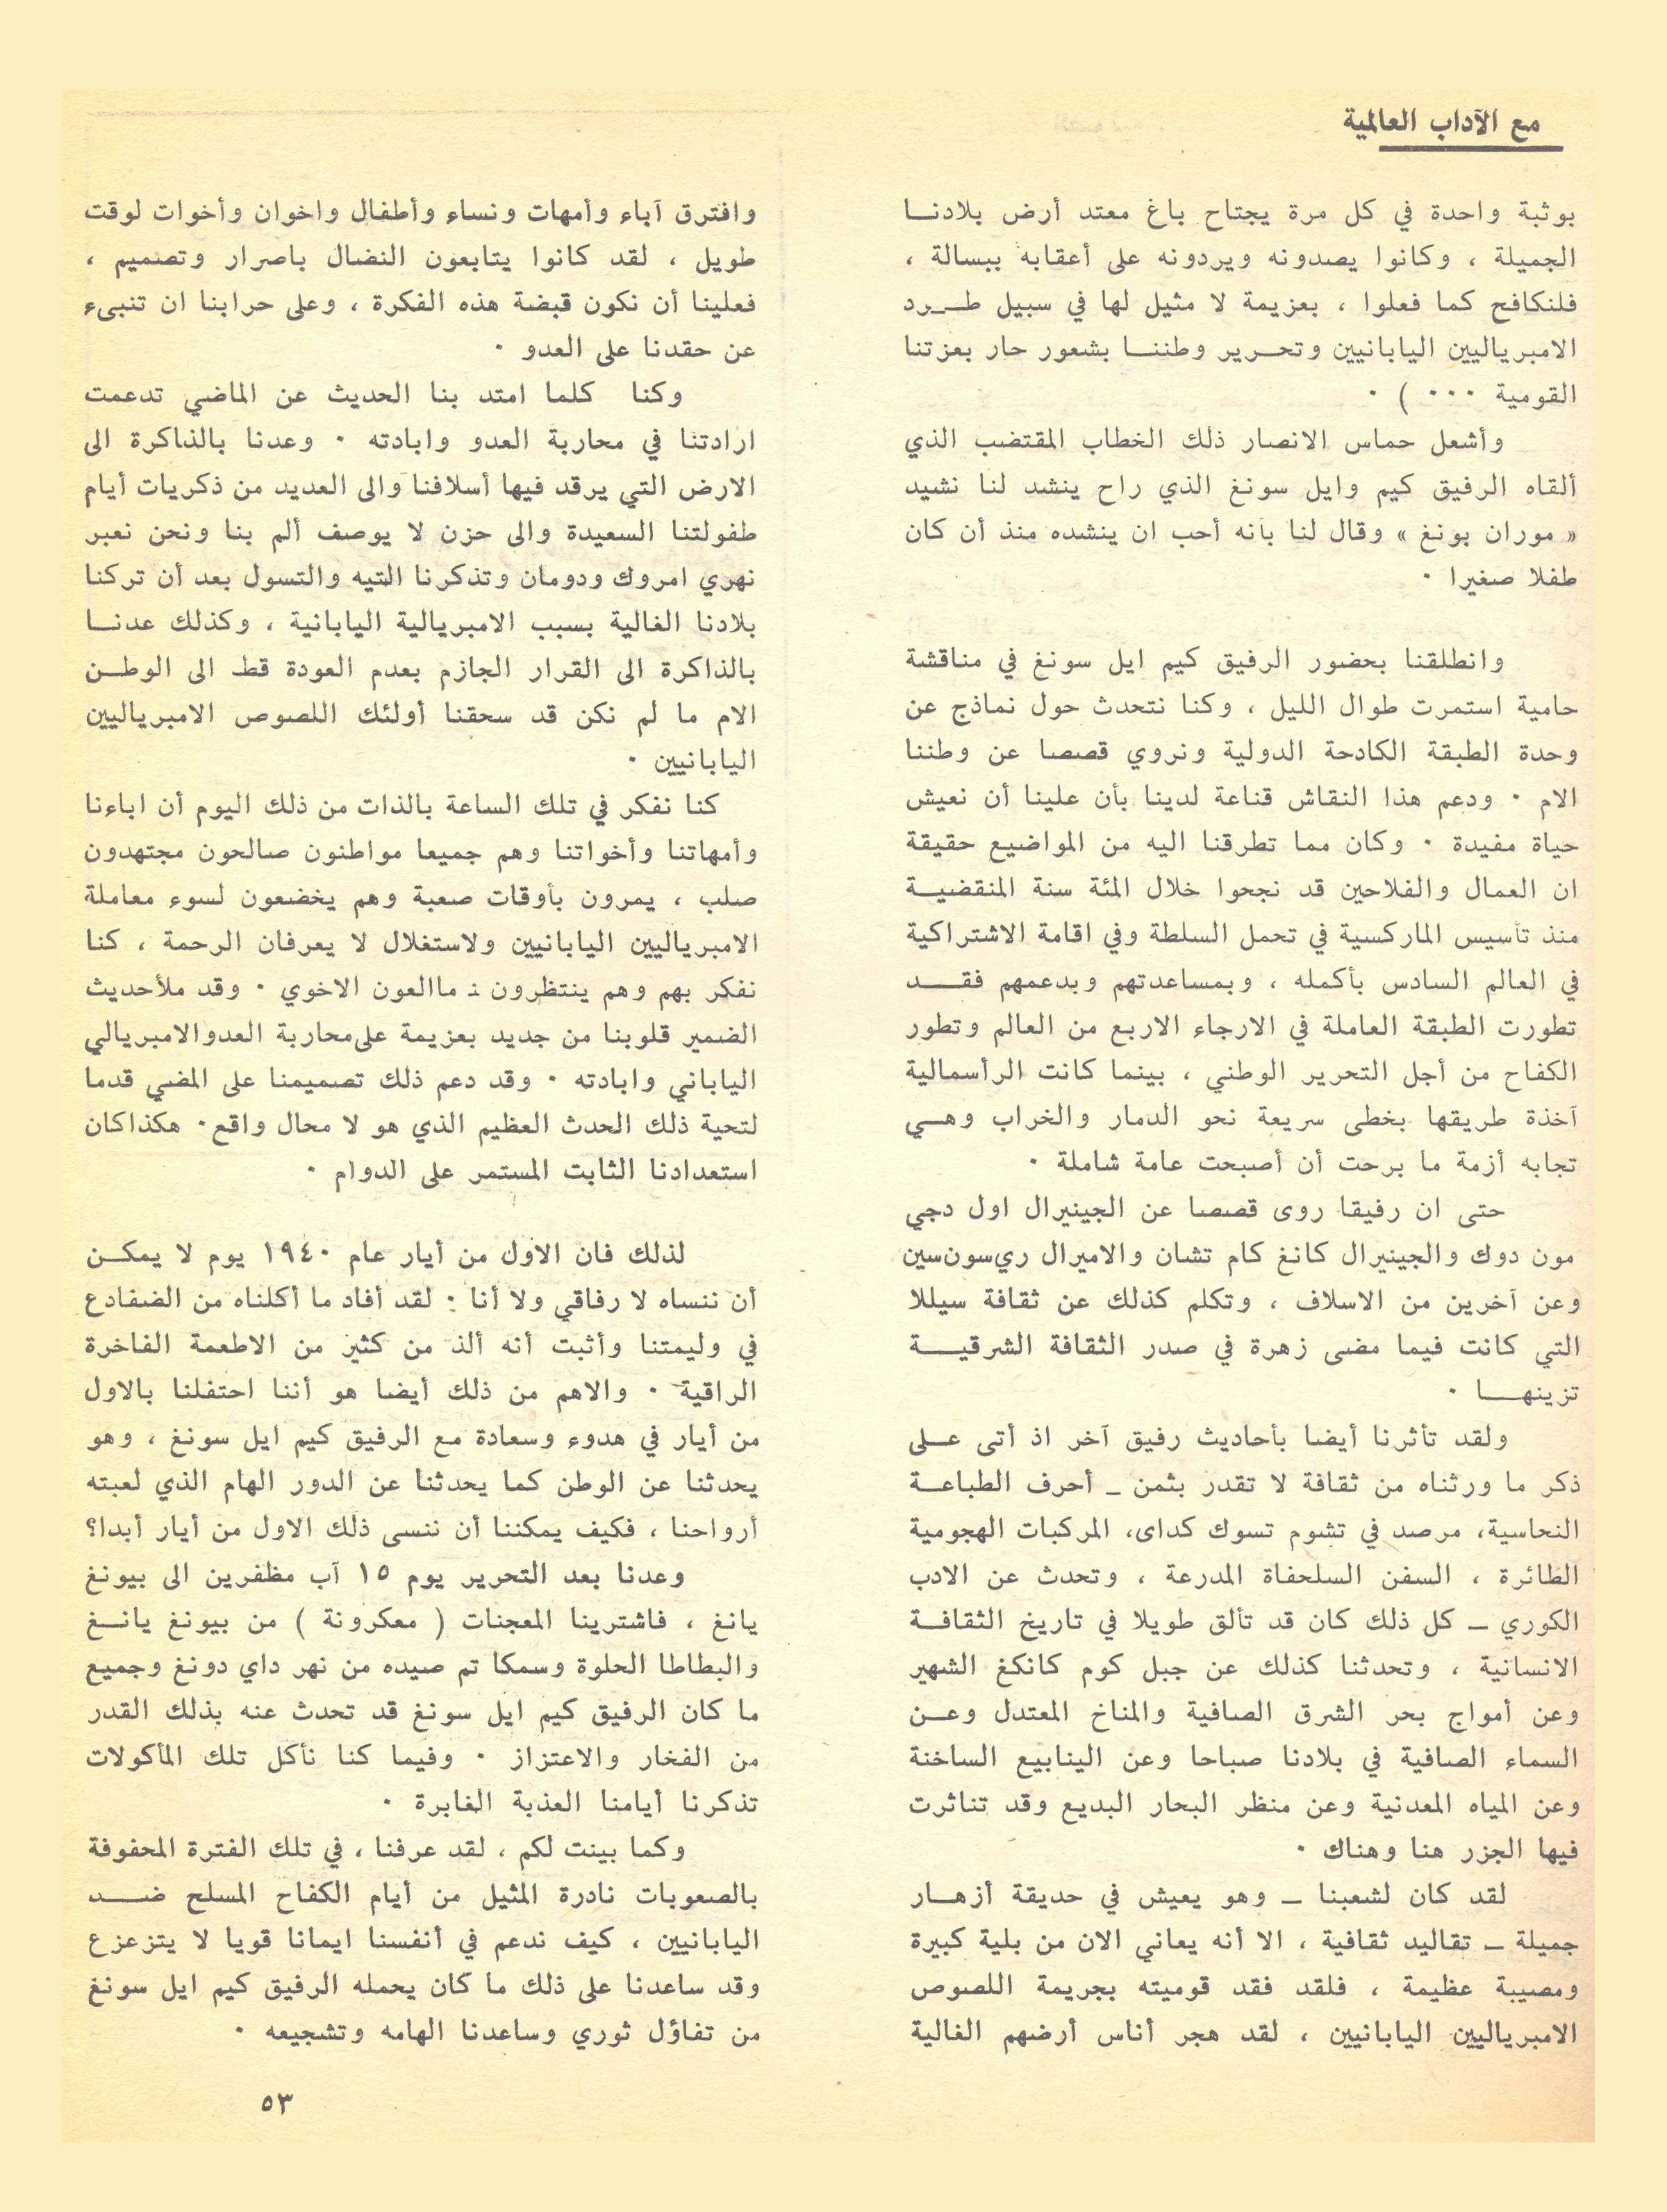 مع الآداب العالمية
بوثبة واحدة في كل مرة يجتاح باغ معتد أرض بلادنا
الجميلة ، وكانوا يصدونه ويردونه على أعقابه ببسالة ،
فلنكافح كما فعلوا ، بعزيمة لا مثيل لها في سبيل طرد
الامبرياليين اليابانيين وتحرير وطننا بشعور حار بعزتنا
القومية ٠٠٠ ) ٠
وأشعل حماس الانصار ذلك الخطاب المقتضب الذي
ألقاه الرفيق كيم وايل سونغ الذي راح ينشد لنا نشيد
« موران بونغ » وقال لنا بأنه أحب ان ينشده منذ أن كان
طفلا صغيرا ٠
وانطلقنا بحضور الرفيق كيم ايل سونغ في مناقشة
حامية استمرت طوال الليل ، وكنا نتحدث حول نماذج عن
وحدة الطبقة الكادحة الدولية ونروي قصصا عن وطننا
الام ٠ ودعم هذا النقاش قناعة لدينا بأن علينا أن نعيش
حياة مفيدة ٠ وكان مما تطرقنا اليه من المواضيع حقيقة
ان العمال والفلاحين قد نجحوا خلال المئة سنة المنقضية
منذ تأسيس الماركسية في تحمل السلطة وفي اقامة الاشتراكية
في العالم السادس بأكمله ، وبمساعدتهم وبدعمهم فقد
تطورت الطبقة العاملة في الارجاء الاربع من العالم وتطور
الكفاح من أجل التحرير الوطني ، بينما كانت الرأسمالية
آخذة طريقها بخطى سريعة نحو الدمار والخراب وهي
تجابه أزمة ما برحت أن أصبحت عامة شاملة ٠
حتى ان رفيقا روى قصصا عن الجينيرال اول دجي
مون دوك والجينيرال كانغ كام تشان والاميرال ري سون سين
وعن آخرين من الاسلاف ، وتكلم كذلك عن ثقافة سيللا
التي كانت فيما مضى زهرة في صدر الثقافة الشرقية
تزينها ٠
ولقد تأثرنا أيضا بأحاديث رفيق آخر اذ أتى على
ذكر ما ورثناه من ثقافة لا تقدر بثمن ــ أحرف الطباعة
النحاسية، مرصد في تشوم تسوك كداى، المركبات الهجومية
الطائرة ، السفن السلحفاة المدرعة ، وتحدث عن الادب
الكوري ــ كل ذلك كان قد تألق طويلا في تاريخ الثقافة
الانسانية ، وتحدثنا كذلك عن جبل كوم كانكغ الشهير
وعن أمواج بحر الشرق الصافية والمناخ المعتدل وعن
السماء الصافية في بلادنا صباحا وعن الينابيع الساخنة
وعن المياه المعدنية وعن منظر البحار البديع وقد تناثرت
فيها الجزر هنا وهناك ٠
لقد كان لشعبنا ــ وهو يعيش في حديقة أزهار
جميلة ــ تقاليد ثقافية ، الا أنه يعاني الان من بلية كبيرة
ومصيبة عظيمة ، فلقد فقد قوميته بجريمة اللصوص
الامبرياليين اليابانيين ، لقد هجر أناس أرضهم الغالية
وافترق آباء وأمهات ونساء وأطفال واخوان وأخوات لوقت
طويل ، لقد كانوا يتابعون النضال باصرار وتصميم ،
فعلينا أن نكون قبضة هذه الفكرة ، وعلى حرابنا ان تنبىء
عن حقدنا على العدو ٠
وكنا كلما امتد بنا الحديث عن الماضي تدعمت
ارادتنا في محاربة العدو وابادته ٠ وعدنا بالذاكرة الى
الارض التي يرقد فيها أسلافنا والى العديد من ذكريات أيام
طفولتنا السعيدة والى حزن لا يوصف ألم بنا ونحن نعبر
نهري امروك ودومان وتذكرنا التيه والتسول بعد أن تركنا
بلادنا الغالية بسبب الامبريالية اليابانية ، وكذلك عدنا
بالذاكرة الى القرار الجازم بعدم العودة قط الى الوطن
الام ما لم نكن قد سحقنا أولئك اللصوص الامبرياليين
اليابانيين ٠
كنا نفكر في تلك الساعة بالذات من ذلك اليوم أن اباءنا
وأمهاتنا وأخواتنا وهم جميعا مواطنون صالحون مجتهدون
صلب ، يمرون بأوقات صعبة وهم يخضعون لسوء معاملة
الامبرياليين اليابانيين ولاستغلال لا يعرفان الرحمة ، كنا
نفكر بهم وهم ينتظرون ماالعون الاخوي ٠ وقد ملأحديث
الضمير قلوبنا من جديد بعزيمة على محاربة العدو الامبريالي
الياباني وابادته ٠ وقد دعم ذلك تصميمنا على المضي قدما
لتحية ذلك الحدث العظيم الذي هو لا محال واقع ٠ هكذا كان
استعدادنا الثابت المستمر على الدوام ٠
لذلك فان الاول من أيار عام ١٩٤٠ يوم لا يمكن
أن ننساه لا رفاقي ولا أنا : لقد أفاد ما أكلناه من الضفادع
في وليمتنا وأثبت أنه ألذ من كثير من الاطعمة الفاخرة
الراقية ٠ والاهم من ذلك أيضا هو أننا احتفلنا بالاول
من أيار في هدوء وسعادة مع الرفيق كيم ايل سونغ ، وهو
يحدثنا عن الوطن كما يحدثنا عن الدور الهام الذي لعبته
أرواحنا ، فكيف يمكننا أن ننسى ذلك الاول من أيار أبدا؟
وعدنا بعد التحرير يوم ١٥ آب مظفرين الى بيونغ
يانغ ، فاشترينا المعجنات ( معكرونة ) من بيونغ يانغ
والبطاطا الحلوة وسمكا تم صيده من نهر داي دونغ وجميع
ما كان الرفيق كيم ايل سونغ قد تحدث عنه بذلك القدر
من الفخار والاعتزاز ٠ وفيما كنا نأكل تلك المأكولات
تذكرنا أيامنا العذبة الغابرة ٠
وكما بينت لكم ، لقد عرفنا ، في تلك الفترة المحفوفة
بالصعوبات نادرة المثيل من أيام الكفاح المسلح ضد
اليابانيين ، كيف ندعم في أنفسنا ايمانا قويا لا يتزعزع
وقد ساعدنا على ذلك ما كان يحمله الرفيق كيم ايل سونغ
من تفاؤل ثوري وساعدنا الهامه وتشجيعه ٠
٥٣